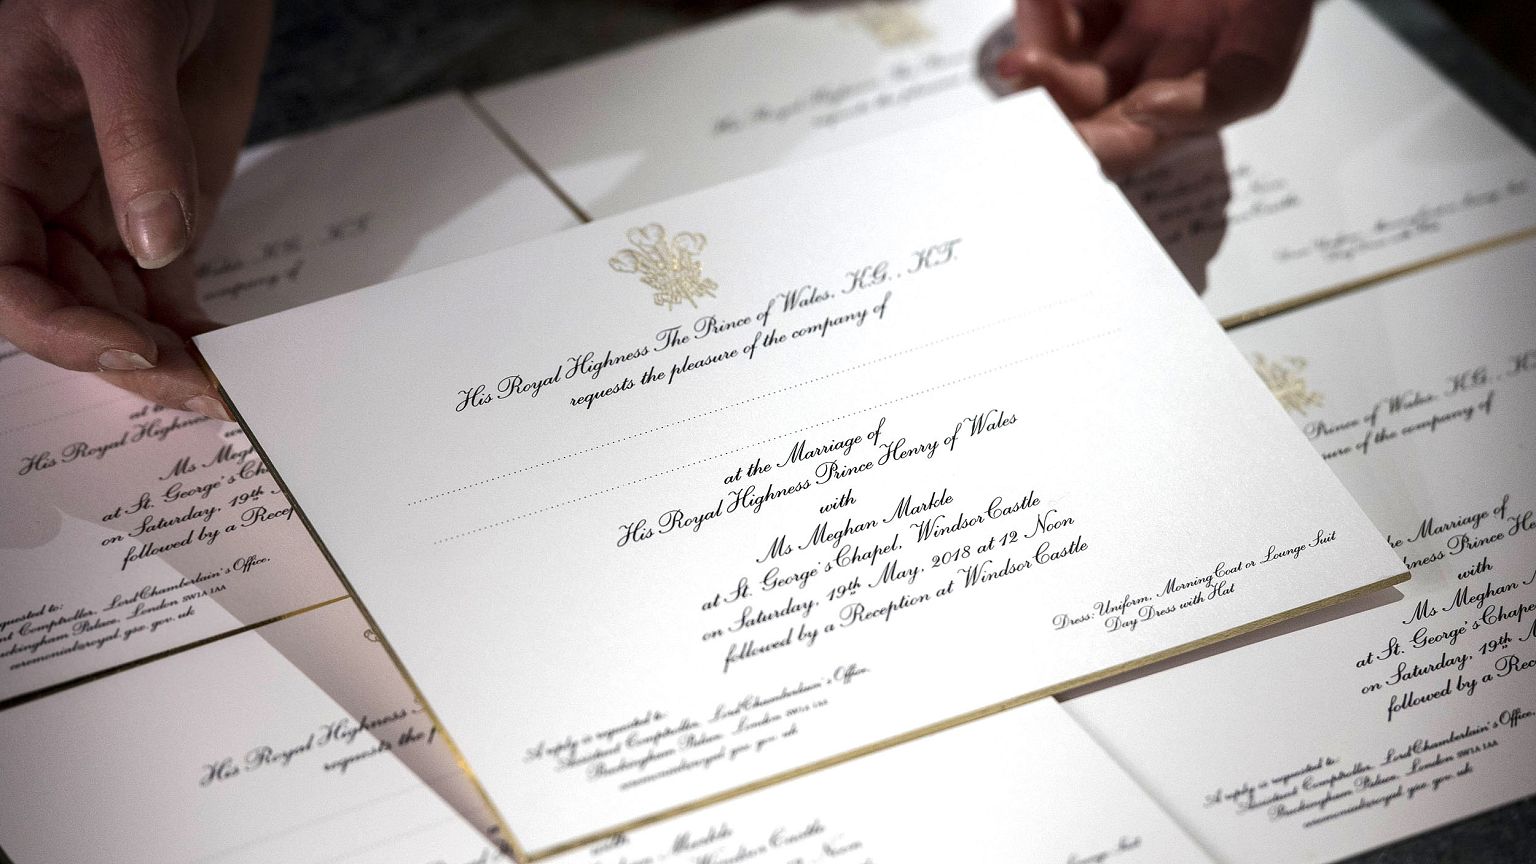 His Royal Highness The Prince of Wales, K.G., K.T.
requests the pleasure of the company of
at the Marriage of
His Royal Highness Prince Henry of Wales
with
Ms Meghan Markle
at St. George's Chapel, Windsor Castle
on Saturday, 19th May, 2018 at 12 Noon
followed by a Reception at Windsor Castle
Dress: Uniform, Morning Coat or Lounge Suit
Day Dress with Hat
A reply is requested to:
Assistant Comptroller, Lord Chamberlain's Office,
Buckingham Palace, London SW1A 1AA
ceremonial@royal.gsx.gov.uk
at the
His Royal Highness
Ms Megh
at St. George's Cha
on Saturday, 19th
followed by a Recep
quested to:
nt Comptroller, Lord Chamberlain's Office,
uckingham Palace, London SW1A 1AA
ceremonial@royal.gsx.gov.uk
Wales, K.G., K.T.
company of
His Royal Highness
requests the
Prince of Wales, K.G., K
sure of the company of
he Marriage of
hness Prince He
with
Ms Meghan
at St. George's Chape
on Saturday, 19th
followed by a Rec
A reply is requested to:
Assistant Comptroller, Lord Chamberlain's Office,
Buckingham Palace, London SW1A 1AA
ceremonial@royal.gsx.gov.uk
with
Markle
Windsor Castle
Noon
Lounge Suit